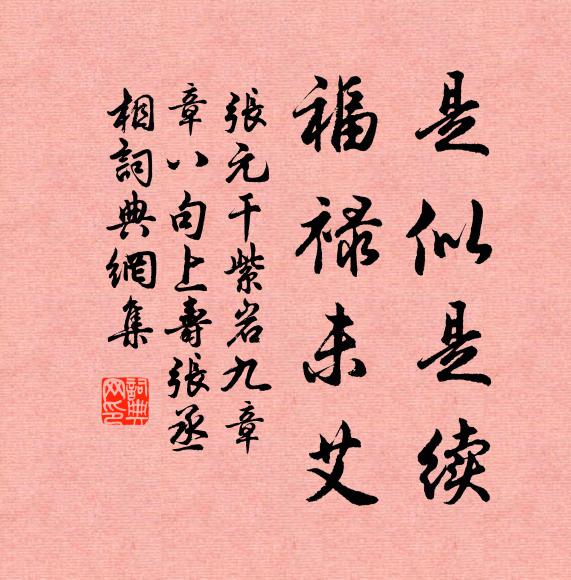 是似是续
福禄未艾
張元干紫岩九章
章八句上壽張丞
相詞典網集
詞典网印